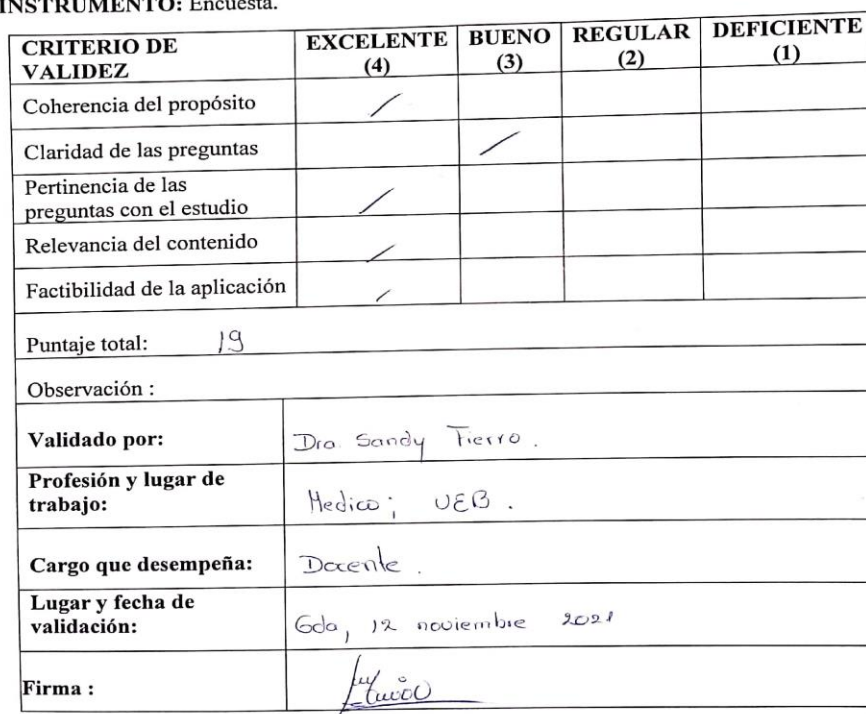 INSTRUMENTO: Encuesta.
CRITERIO DE VALIDEZ EXCELENTE (4) BUENO (3) REGULAR (2) DEFICIENTE (1)
Coherencia del propósito /
Claridad de las preguntas /
Pertinencia de las
preguntas con el estudio /
Relevancia del contenido /
Factibilidad de la aplicación /
Puntaje total: 19
Observación :
Validado por: Dra. Sandy Fierro.
Profesión y lugar de
trabajo: Medico; UEB.
Cargo que desempeña: Docente.
Lugar y fecha de
validación: Gda, 12 noviembre 2021
Firma :